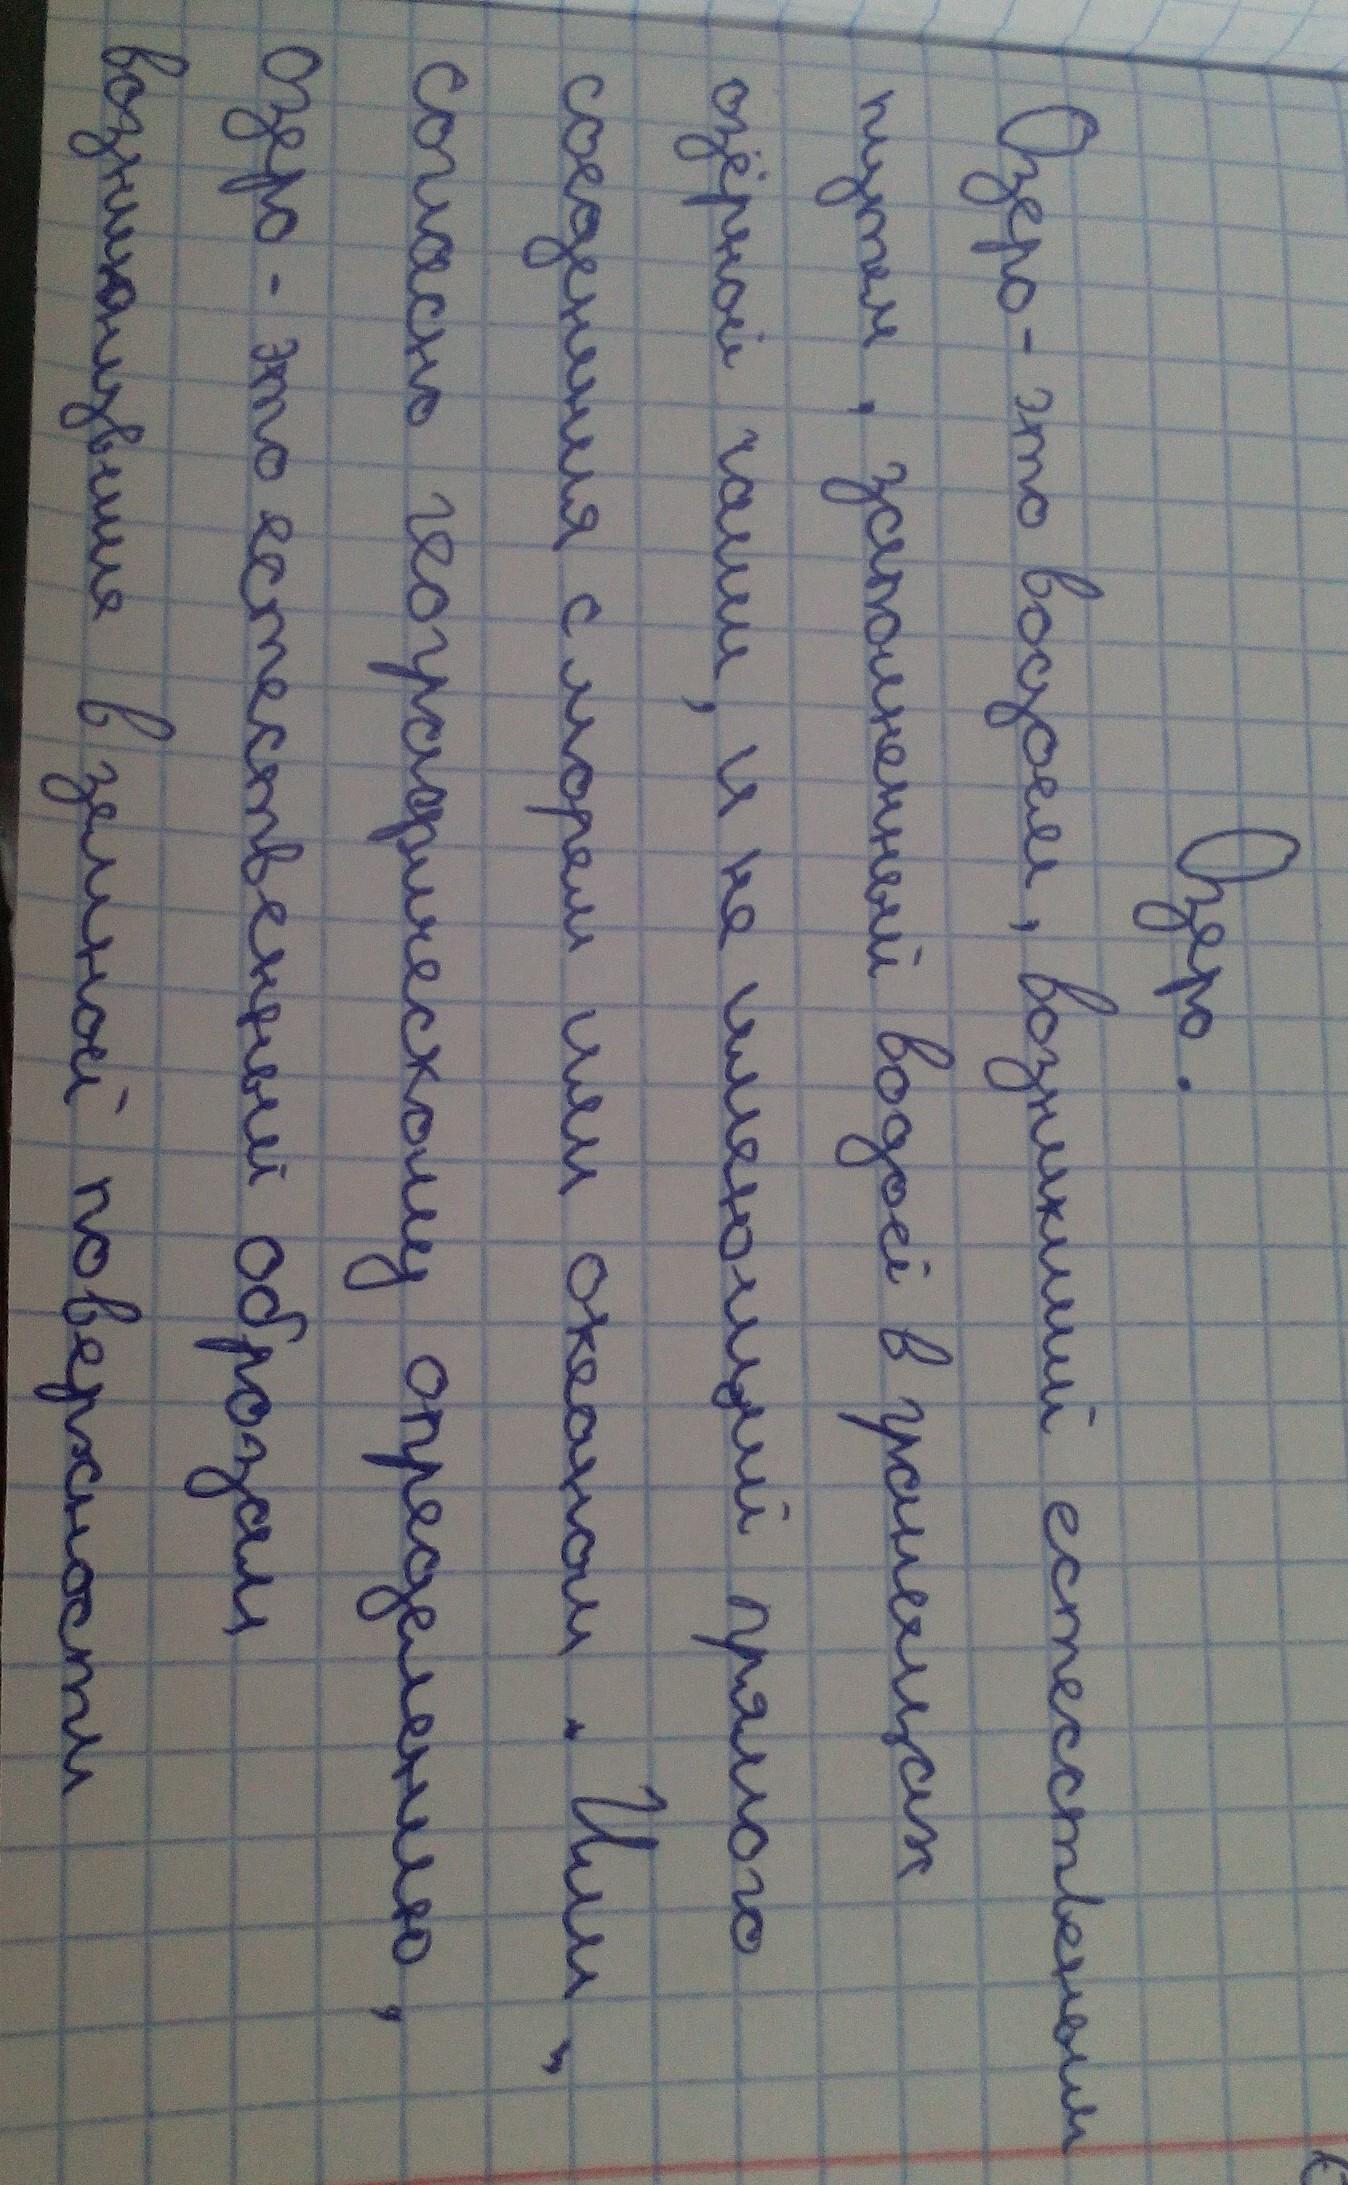 Озеро.
Озеро - это восуоем, возникший естественым
путем, заполненный водой в границах
озёрной чаши, и не имеющий прямого
соеденения с морем или океаном. Или,
согласно географическому определению,
озеро - это естественый образам
возниканзувшие в земнной поверхности